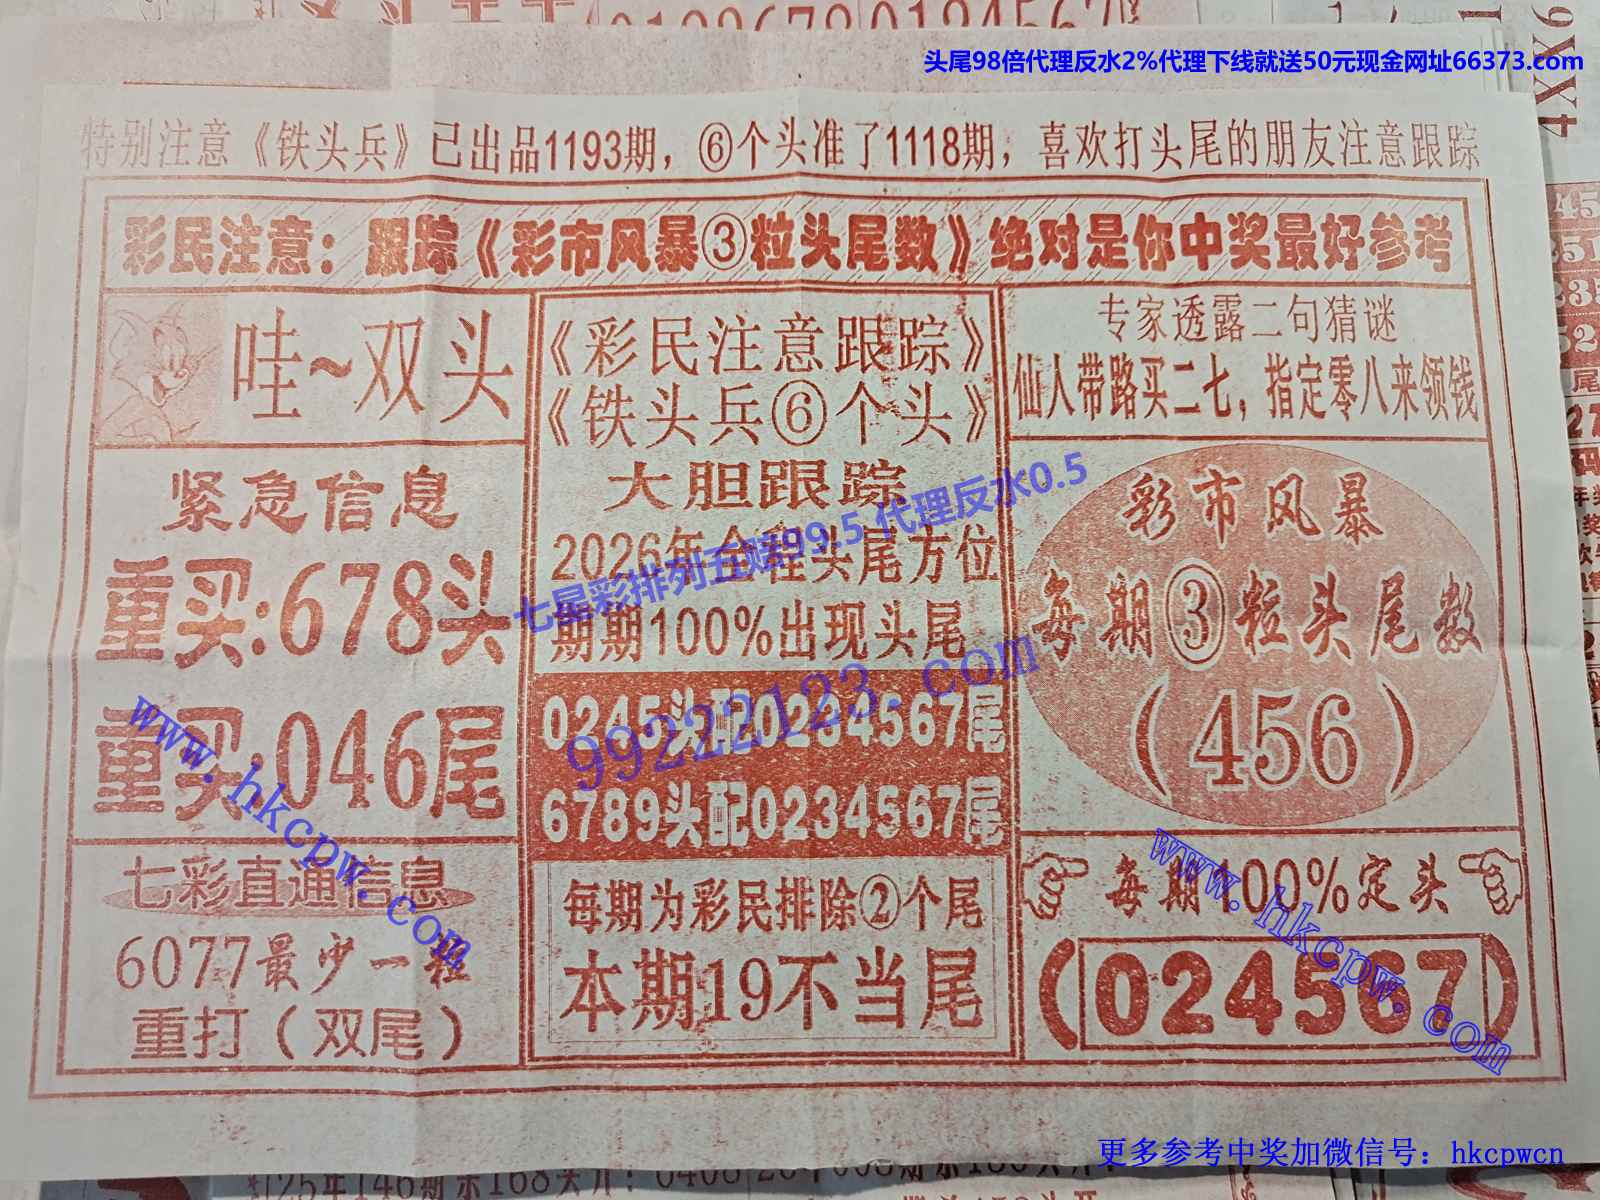 头尾98倍代理反水2%代理下线就送50元现金网址66373.com
特别注意《铁头兵》已出品1193期，⑥个头准了1118期，喜欢打头尾的朋友注意跟踪
彩民注意：跟踪《彩市风暴③粒头尾数》绝对是你中奖最好参考
哇~双头
紧急信息
重买:678头
重买:046尾
七彩直通信息
6077最少一粒
重打（双尾）
《彩民注意跟踪》
《铁头兵⑥个头》
大胆跟踪
2026年全程头尾方位
期期100%出现头尾
0245头配0234567尾
6789头配0234567尾
每期为彩民排除②个尾
本期19不当尾
专家透露二句猜谜
仙人带路买二七，指定零八来领钱
彩市风暴
每期③粒头尾数
（456）
每期100%定头
（024567）
七星彩排列五赔99.5 代理反水0.5
99222123.com
www.hkcpw.com
www.hkcpw.com
更多参考中奖加微信号：hkcpwcn